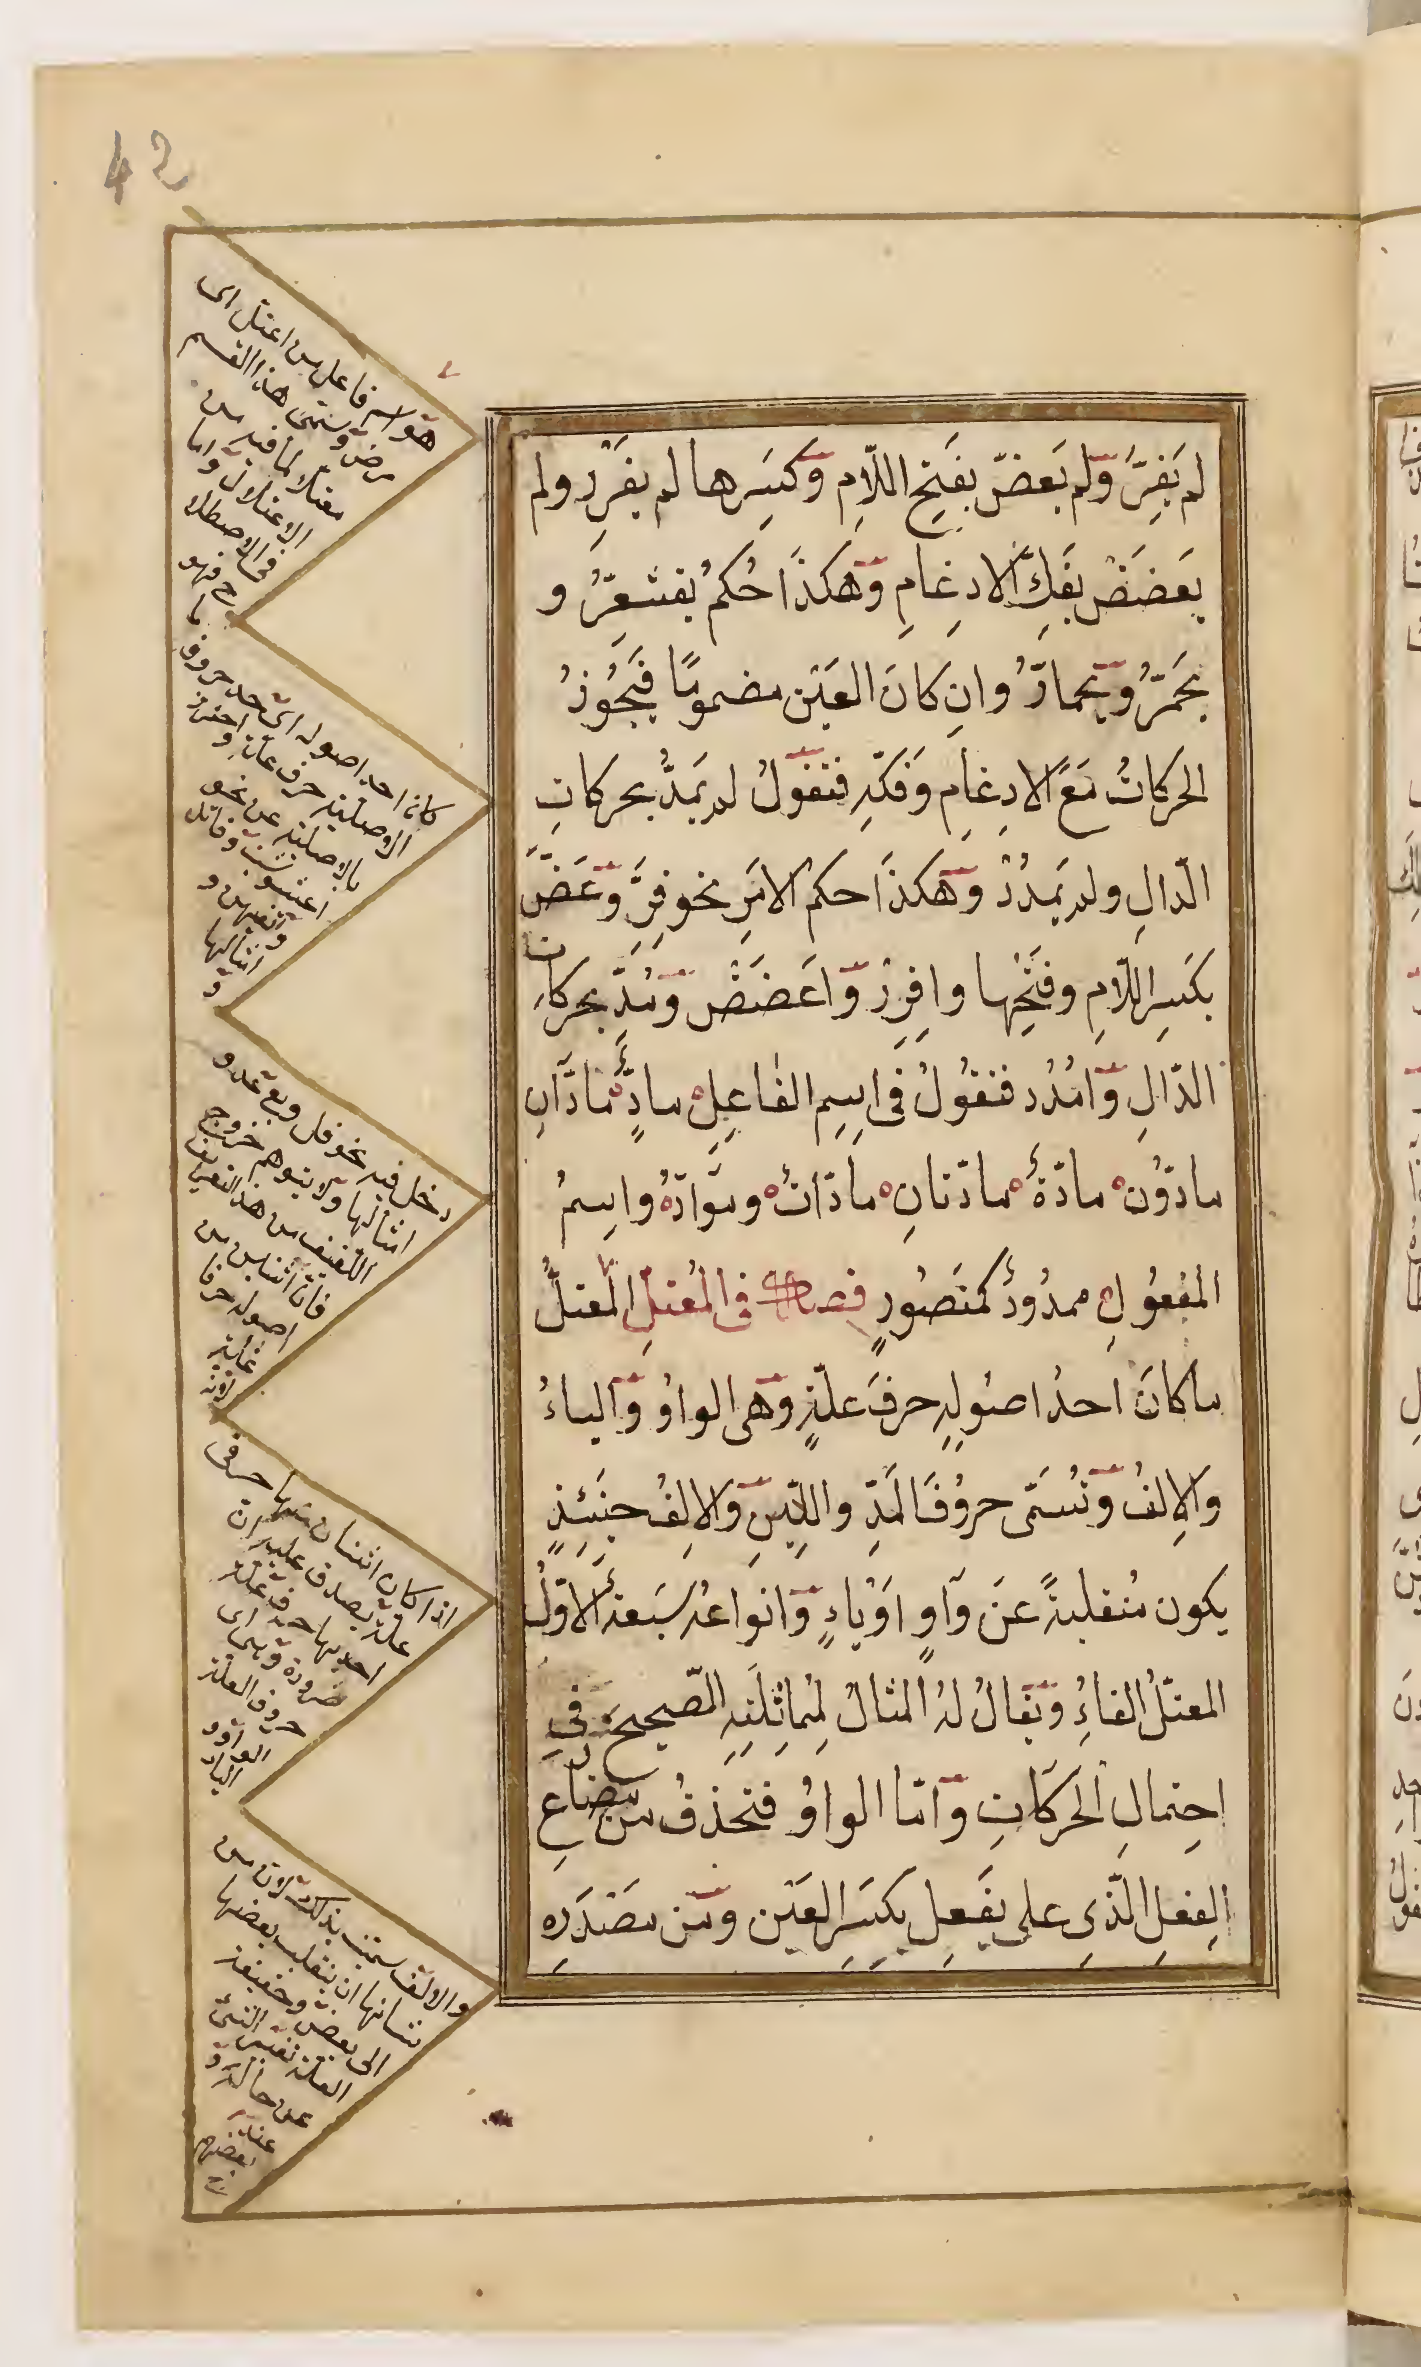 42
لم يَفِرَّ وَلم يَعضّ بفَتحِ اللّامِ وَكَسرِها لم يفرِر ولم
يَعضَضْ بفَكِّ الادغامِ وَهكذَا حُكمُ يقشعِرُّ و
يحمَرُّ ويحمارُّ وان كانَ العَين مضمومًا فيَجُوزُ
الحركاتُ مَعَ الادِغامِ وَفَكّهِ فتقولُ لم يَمدُّ بحركاتِ
الدّالِ ولم يَمدُدْ وَهكذَا حكمُ الامَرِ نحو فِرَّ وَعَضَّ
بكَسرِ اللّامِ وفَتْحِها وافِرِرْ وَاعَضَضْ وَمُدَّ بحركات
الدّالِ وَامْدُد فتقُولُ فى اِسِمِ الفاعِلِ مادٌّ مادّانِ
مادّوُن مادّةٌ مادّتانِ مادّاتٌ وموَادّهُ واسِمُ
المفعُولِ ممدُودٌ كمنَصُورٍ فصل فى المُعتلِّ المُعتلُّ
ما كانَ احدُ اصُولِهِ حرفَ علّةٍ وَهى الواوُ وَالياءُ
وَالِالفُ وَتُسَمّى حروُفَ المَدِّ واللِّينِ وَالالِفُ حينَئِذٍ
يكون مُنقلبةً عنَ وَاوٍ اوَْ ياءٍ وَانواعهُ سَبَعةٌ الاوّلُ
المعتلُّ الفاءُ وَيقالُ لهُ المثالُ لِمُماثِلَتِهِ الصّحيحَ فى
احِتمالِ الحَركَاتِ وَامّا الواوُ فتحذفُ من مضارع
الِفعلِ الّذِى على يَفعِل بكسَرِ العَيَن وَمن مصَدَرِه
هو اسم فاعل من اعتل اى
مرض وسمى هذا القسم
معتلا لما فيه من
الاعتلال واما
فى الاصطلا
ح فهو
ما
كان احد اصوله اى احد حروفه
الاصلية حرف علة واحترز
بالاصلية عن نحو
اعشوشب وقاتل
وتفيهق و
امثالها
و
دخل فيه نحو قل وبع وعد و
امثالها ولا يتوهم خروج
اللفيف من هذا التعريف
فان اثنان من
اصوله حرفا
علة
لانه
اذا كان اثنان منها حرفى
علة يصدق عليه ان
احديها حرف علة
ضرورة وهى اى
حروف العلة
الواو و
الياء
والالف سميت بذلك لان من
شانها ان ينقلب بعضها
الى بعض وحقيقة
العلة تغير الشئ
عن حاله و
عند
بعضهم